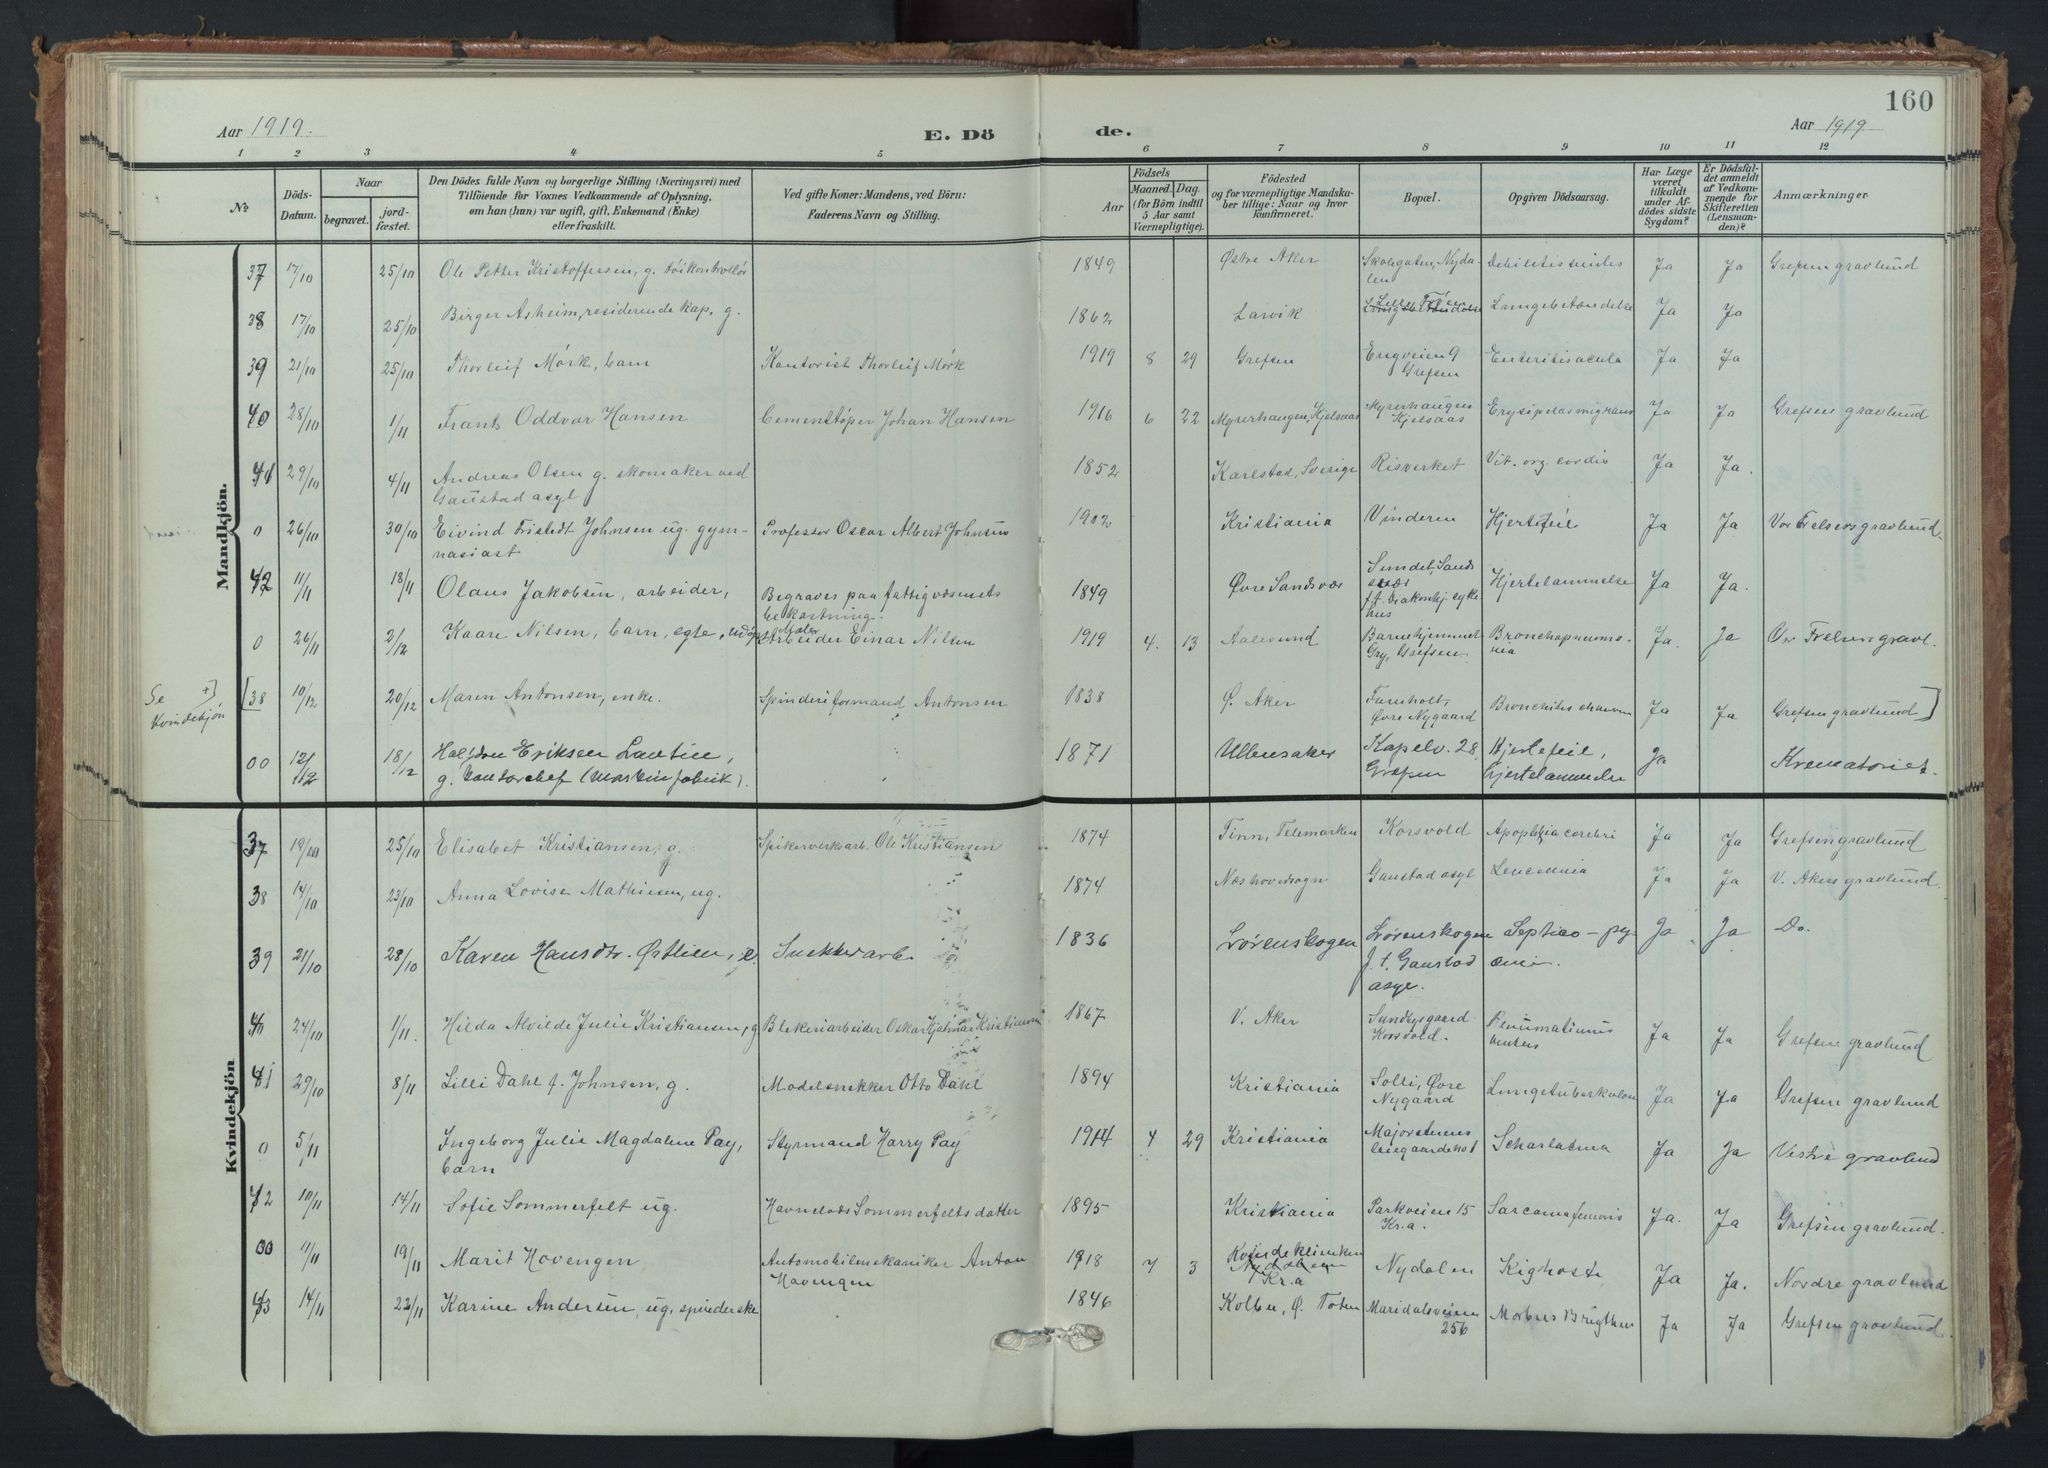 160
Aar 1919.
E. Dö de.
Aar 1919
1 2 3 4 5 6 7 8 9 10 11 12
No
Döds-Datum.
Naar
begravet.
jord-fæstet.
Den Dödes fulde Navn og borgerlige Stilling (Næringsvei) med
Tilföiende for Voxnes Vedkommende af Oplysning,
om han (hun) var ugift, gift, Enkemand (Enke)
eller fraskilt.
Ved gifte Koner: Mandens, ved Börn:
Faderens Navn og Stilling.
Födsels
Aar
Maaned. Dag.
(for Börn indtil
5 Aar samt
Værnepligtige).
Födested
og for værnepligtige Mandska-
ber tillige: Naar og hvor
konfirmeret.
Bopæl.
Opgiven Dödsaarsag.
Har Læge
været
tilkaldt
under Af-
dödes sidste
Sygdom?
Er Dödsfal-
det anmeldt
af Vedkom-
mende for
Skifteretten
(Lensman-
den)?
Anmærkninger
Mandkjön.
37 17/10 25/10 Ole Petter Kristoffersen, g. töikontrollör 1849 Østre Aker Skolegaten, Nyda-len Debilitis senilis Ja Ja Grefsen gravlund
38 17/10 25/10 Birger Asheim, residerende kap. g. 1862 Larvik Lille Frøen Lungebetændelse Ja Ja
39 21/10 25/10 Thorleif Mörk, barn Kontorist Thorleif Mörk 1919 8 29 Grefsen Engveien 9 Grefsen Enteritis acuta Ja Ja
40 28/10 1/11 Frants Oddvar Hansen Cementstöper Johan Hansen 1916 6 22 Myrerhaugen, Kjelsaas Myrerhaugen Kjelsaas Erysipelas migrans Ja Ja Grefsen gravlund
41 29/10 4/11 Andreas Olsen g. skomaker ved
Gaustad asyl 1852 Karlstad, Sverige Risverket Vit. org. cordis Ja Ja.
0 26/10 30/10 Eivind Fistedt Johnsen ug. gym-
nasiast Professor Oscar Albert Johnsen 1902 Kristiania Vinderen Hjertefeil Ja Ja Vor Frelsers gravlund.
42 11/11 18/11 Olaus Jakobsen, arbeider, Begraves paa fattigvæsenets
bekostning. 1849 Øvre Sandsvær Sandsvær f.t. Diakonhj. syke hus Hjertelammelse Ja Ja.
0 26/11 2/12 Kaare Nilsen, barn, egte, Maler Arbeider Einar Nilsen 1919 4. 13 Aalesund Barnehjemmet Gry, Grefsen Bronchopneumo-nia Ja. Ja Vor Frelsers gravl.
Se Kvindekjön +] [38 10/12 20/12 Maren Antonsen, enke. Spinderiformand Antonsen 1838 Ø. Aker Furuholt, Øvre Nygaard Bronchitis chronica Ja Ja Grefsen gravlund]
00 12/12 18/12 Halfdan Eriksen Lautin,
g. kontorchef (Maskinfabrik). 1871 Ullensaker Kapelv. 28, Grefsen Hjertefeil, hjertelammelse Ja Krematoriet.
Kvindekjön
37 19/10 25/10 Elisabet Kristiansen, g. Spikerverksarb. Ole Kristiansen 1874 Tinn, Telemarken Korsvold Apoplexia cerebri Ja Ja Grefsen gravlund
38 14/10 23/10 Anna Lovise Mathisen, ug. 1874 Næs hovedsogn Gaustad asyl Leucemia Ja Ja V. Akers gravlund.
39 21/10 28/10 Karen Hansdtr. Østlien, e. Snekkerarb. 1836 Lørenskogen Lørenskogen f.t. Gaustad asyl. Septico-py-æmi. Ja Ja Do.
40 24/10 1/11 Hilda Alvilde Julie Kristiansen, g Blekeriarbeider Oskar Hjalmar Kristiansen 1867 V. Aker Sundbygaard Korsvold. Ja Ja Grefsen gravlund
41 29/10 8/11 Lilli Dahl f. Johnsen, g. Modelsnekker Otto Dahl 1894 Kristiania Solli, Øvre Nygaard Lungetuberkulose Ja Ja Grefsen gravlund
0 5/11 Ingeborg Julie Magdalene Pay,
barn Styrmand Harry Pay 1914 4 29 Kristiania Majorstuens Scharlatina Ja Ja Vestre gravlund
42 10/11 14/11 Sofie Sommerfelt ug. Havnelods Sommerfelts datter 1895 Kristiania Parkveien 15 Kr.a Sarcoma femoris Ja. Ja Grefsen gravlund.
00 11/11 19/11 Marit Hovengen Automobilmekaniker Anton
Hovengen 1918 7 3 Kvindeklinikken Kr.a Nydalen Kighoste Ja Ja. Nordre gravlund
43 14/11 22/11 Karine Andersen, ug, spinderske 1846 Kolbu, Ø. Toten Maridalsveien 256 Morbus Brigthii Ja Ja Grefsen gravlund.